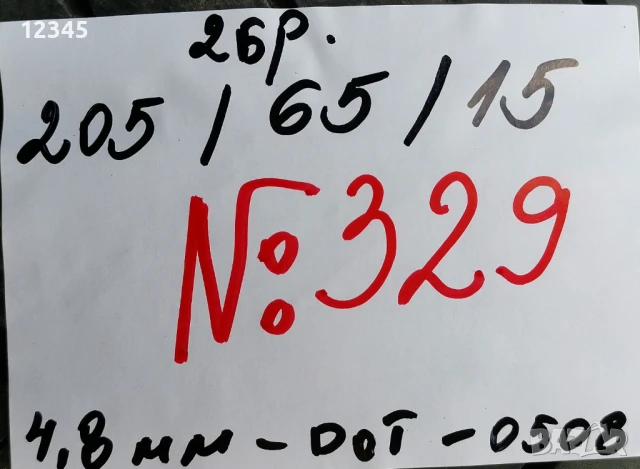 12345
2бр.
205/65/15
№329
4,8мм-DOT-0508